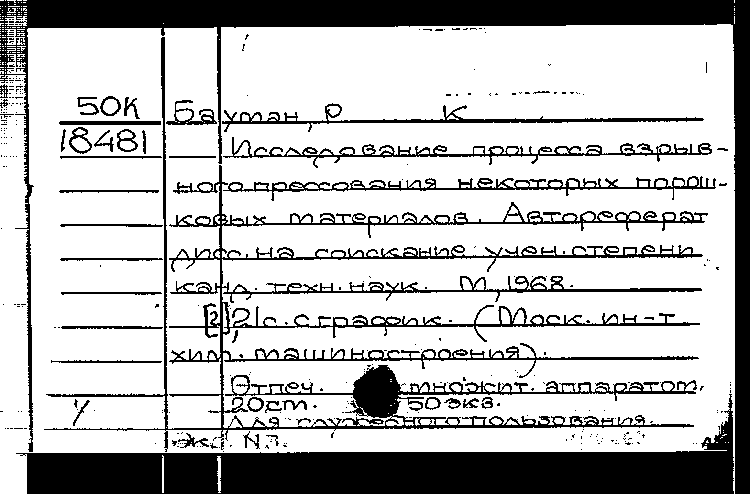 50К Бауман, Р К
18481 Исследование процесса взрыв-
ного прессования некоторых порош-
ковых материалов. Автореферат
дисс. на соискание учен. степени
канд. техн. наук. М, 1968.
[2], 21с. с график. (Моск. ин-т
хим. машиностроения).
Отпеч. множит. аппаратом.
20см. 50 экз.
Для служебного пользования.
Экз N